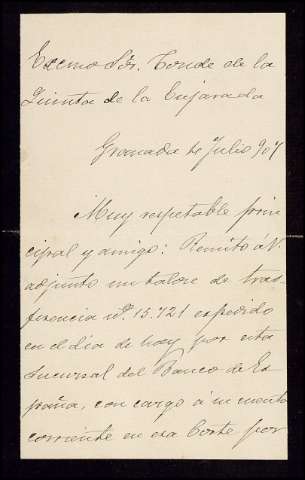 Excmo Sór. Conde de la
Quinta de la Enjarada
Granada de Julio 907
Muy respetable prin-
cipal y amigo: Remito á V.
adjunto un talon de tras-
ferencia nº 15.721 espedido
en el dia de hoy por esta
Sucursal del Banco de Es-
paña, con cargo á mi cuenta
corriente en esa Corte por